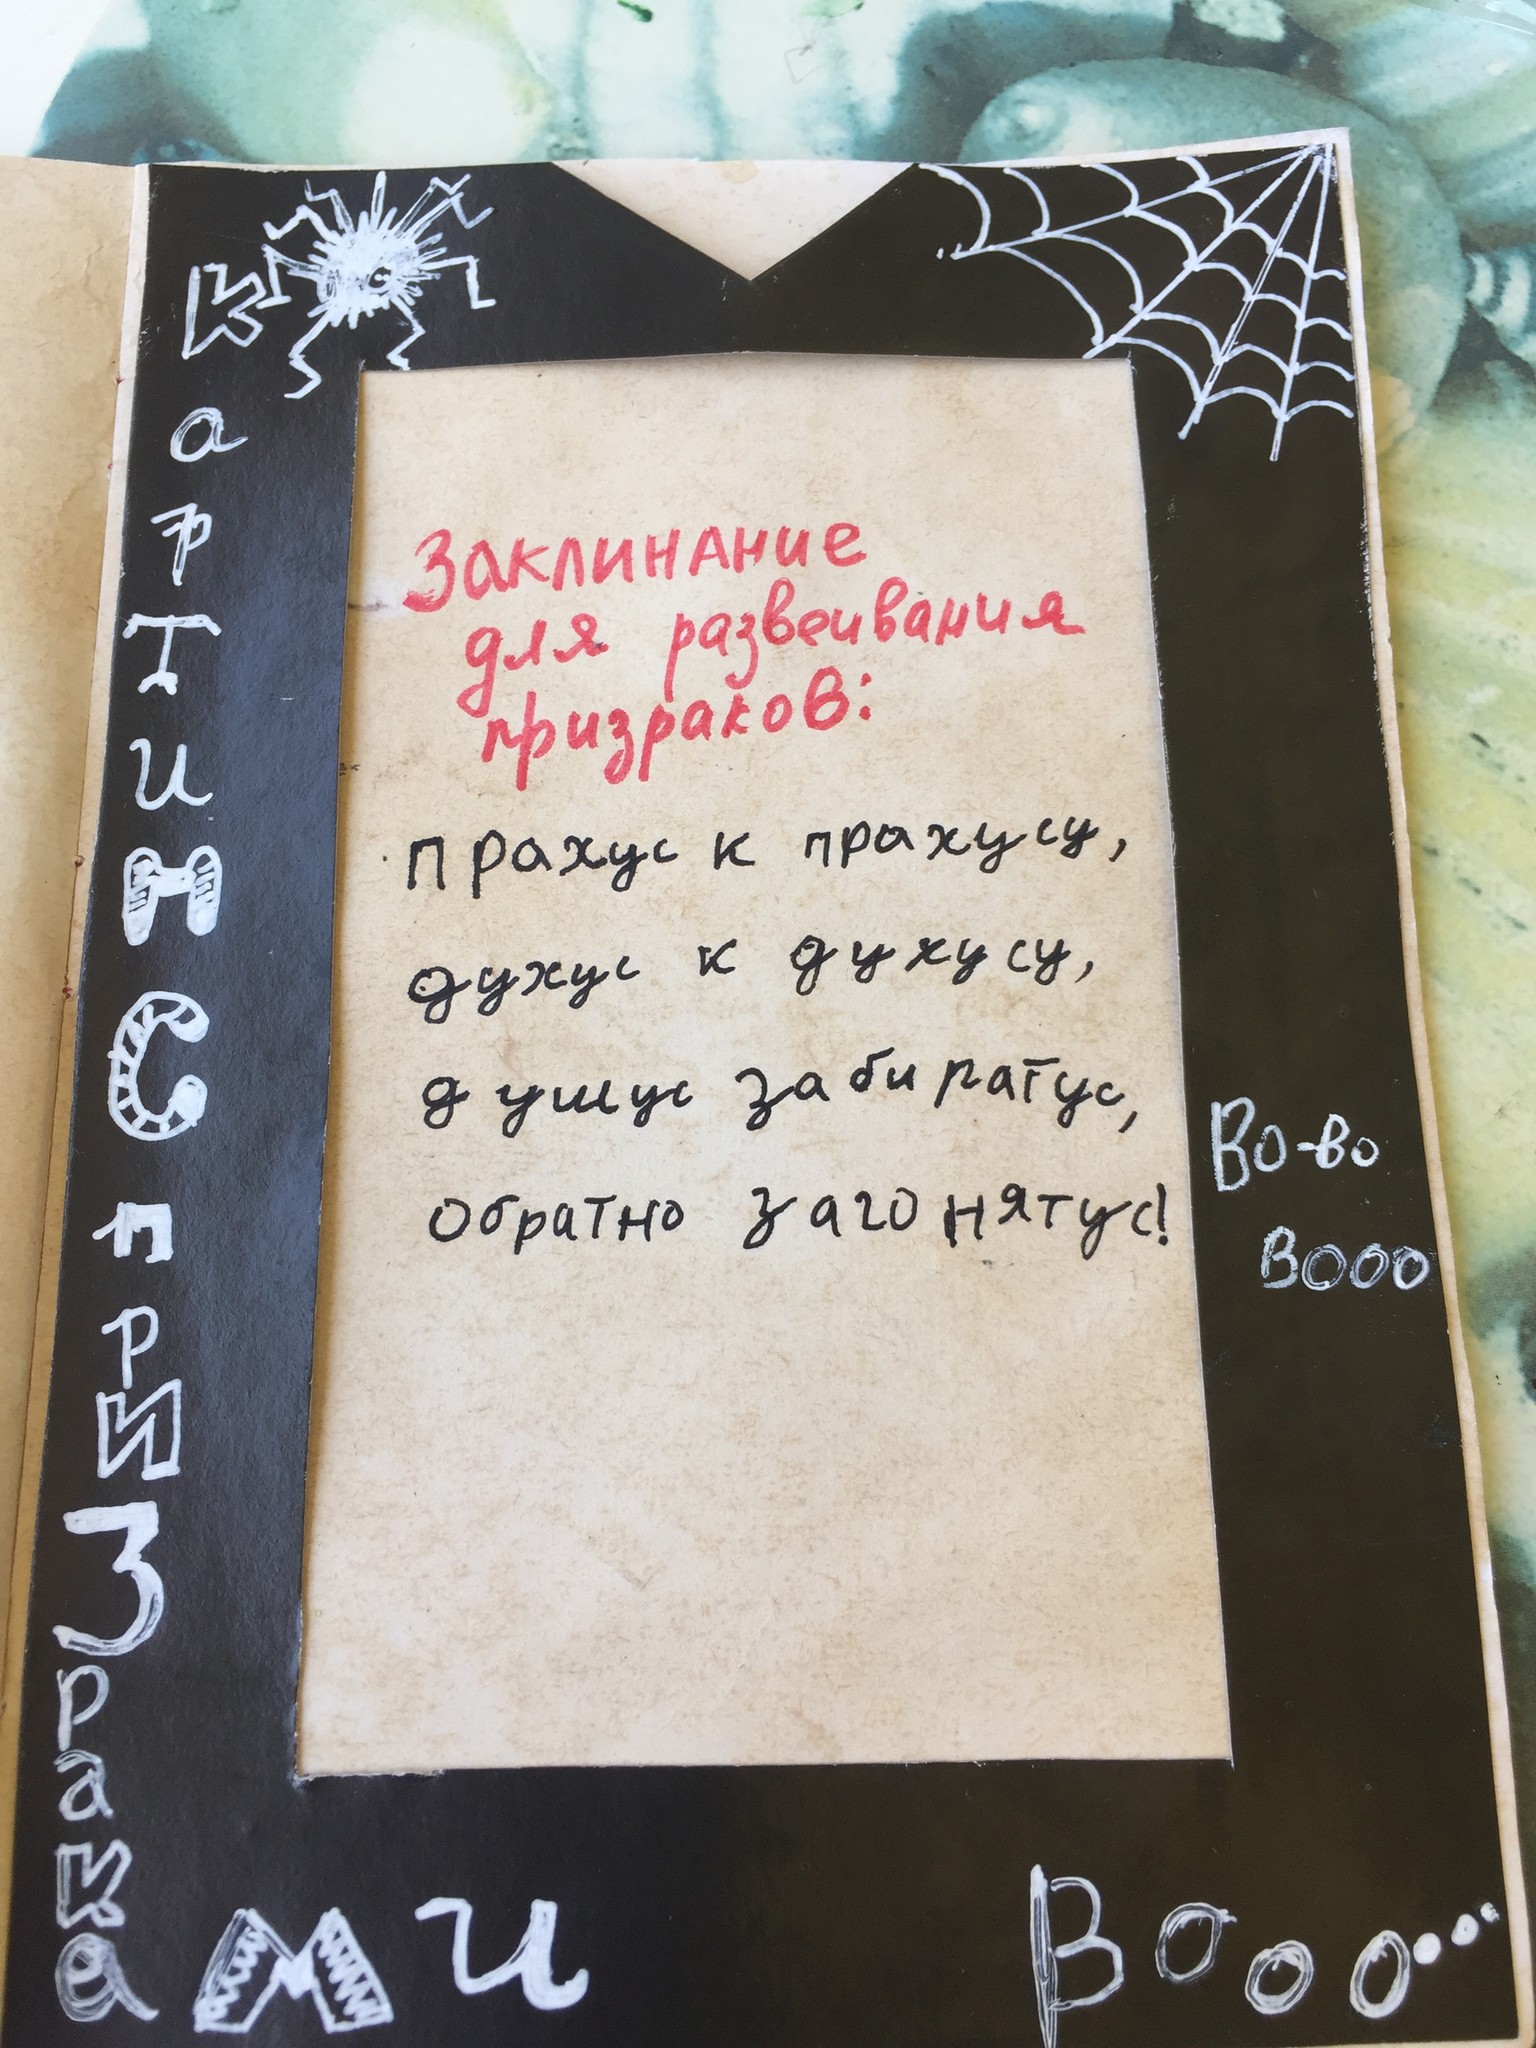 Картинс призраками
Заклинание
для развеивания
призраков:
Прахус к прахусу,
духус к духусу,
душус забиратус,
обратно загонятус!
Во-во
вооо
Вооо...